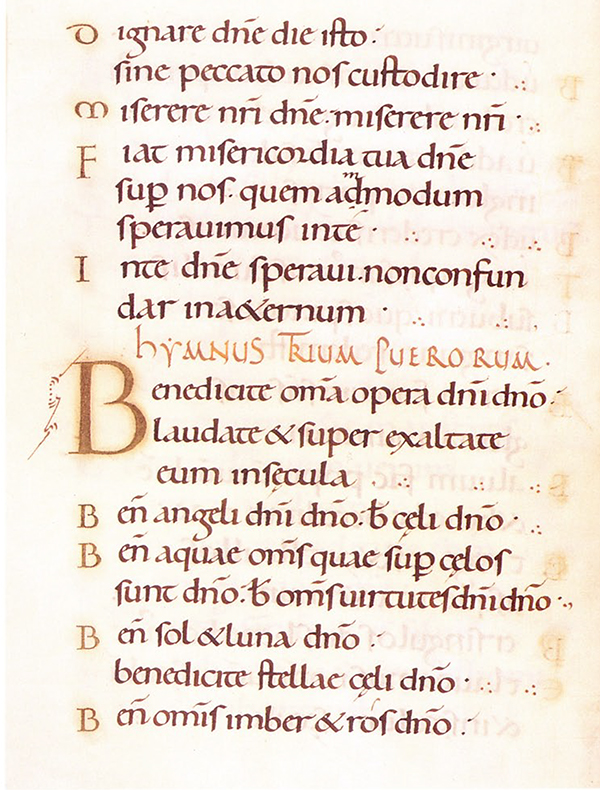 Dignare dn̄e die isto·
sine peccato nos custodire·
Miserere nr̄i dn̄e. miserere nr̄i·
Fiat misericordia tua dn̄e
sup̄ nos. quem admodum
sperauimus inte·
Inte dn̄e speraui. nonconfun
dar ina&ernum·
hYMNUS TRIUM PUERORUM·
Benedicite om̄a opera dn̄i dn̄o·
laudate & super exaltate
eum insęcula
Ben̄ angeli dn̄i dn̄o. b̄ cęli dn̄o·
Ben̄ aquae om̄s quae sup̄ cęlos
sunt dn̄o. b̄ om̄s uirtutes dn̄i dn̄o·
Ben̄ sol & luna dn̄o·
benedicite stellae cęli dn̄o·
Ben̄ omīs imber & ros dn̄o·